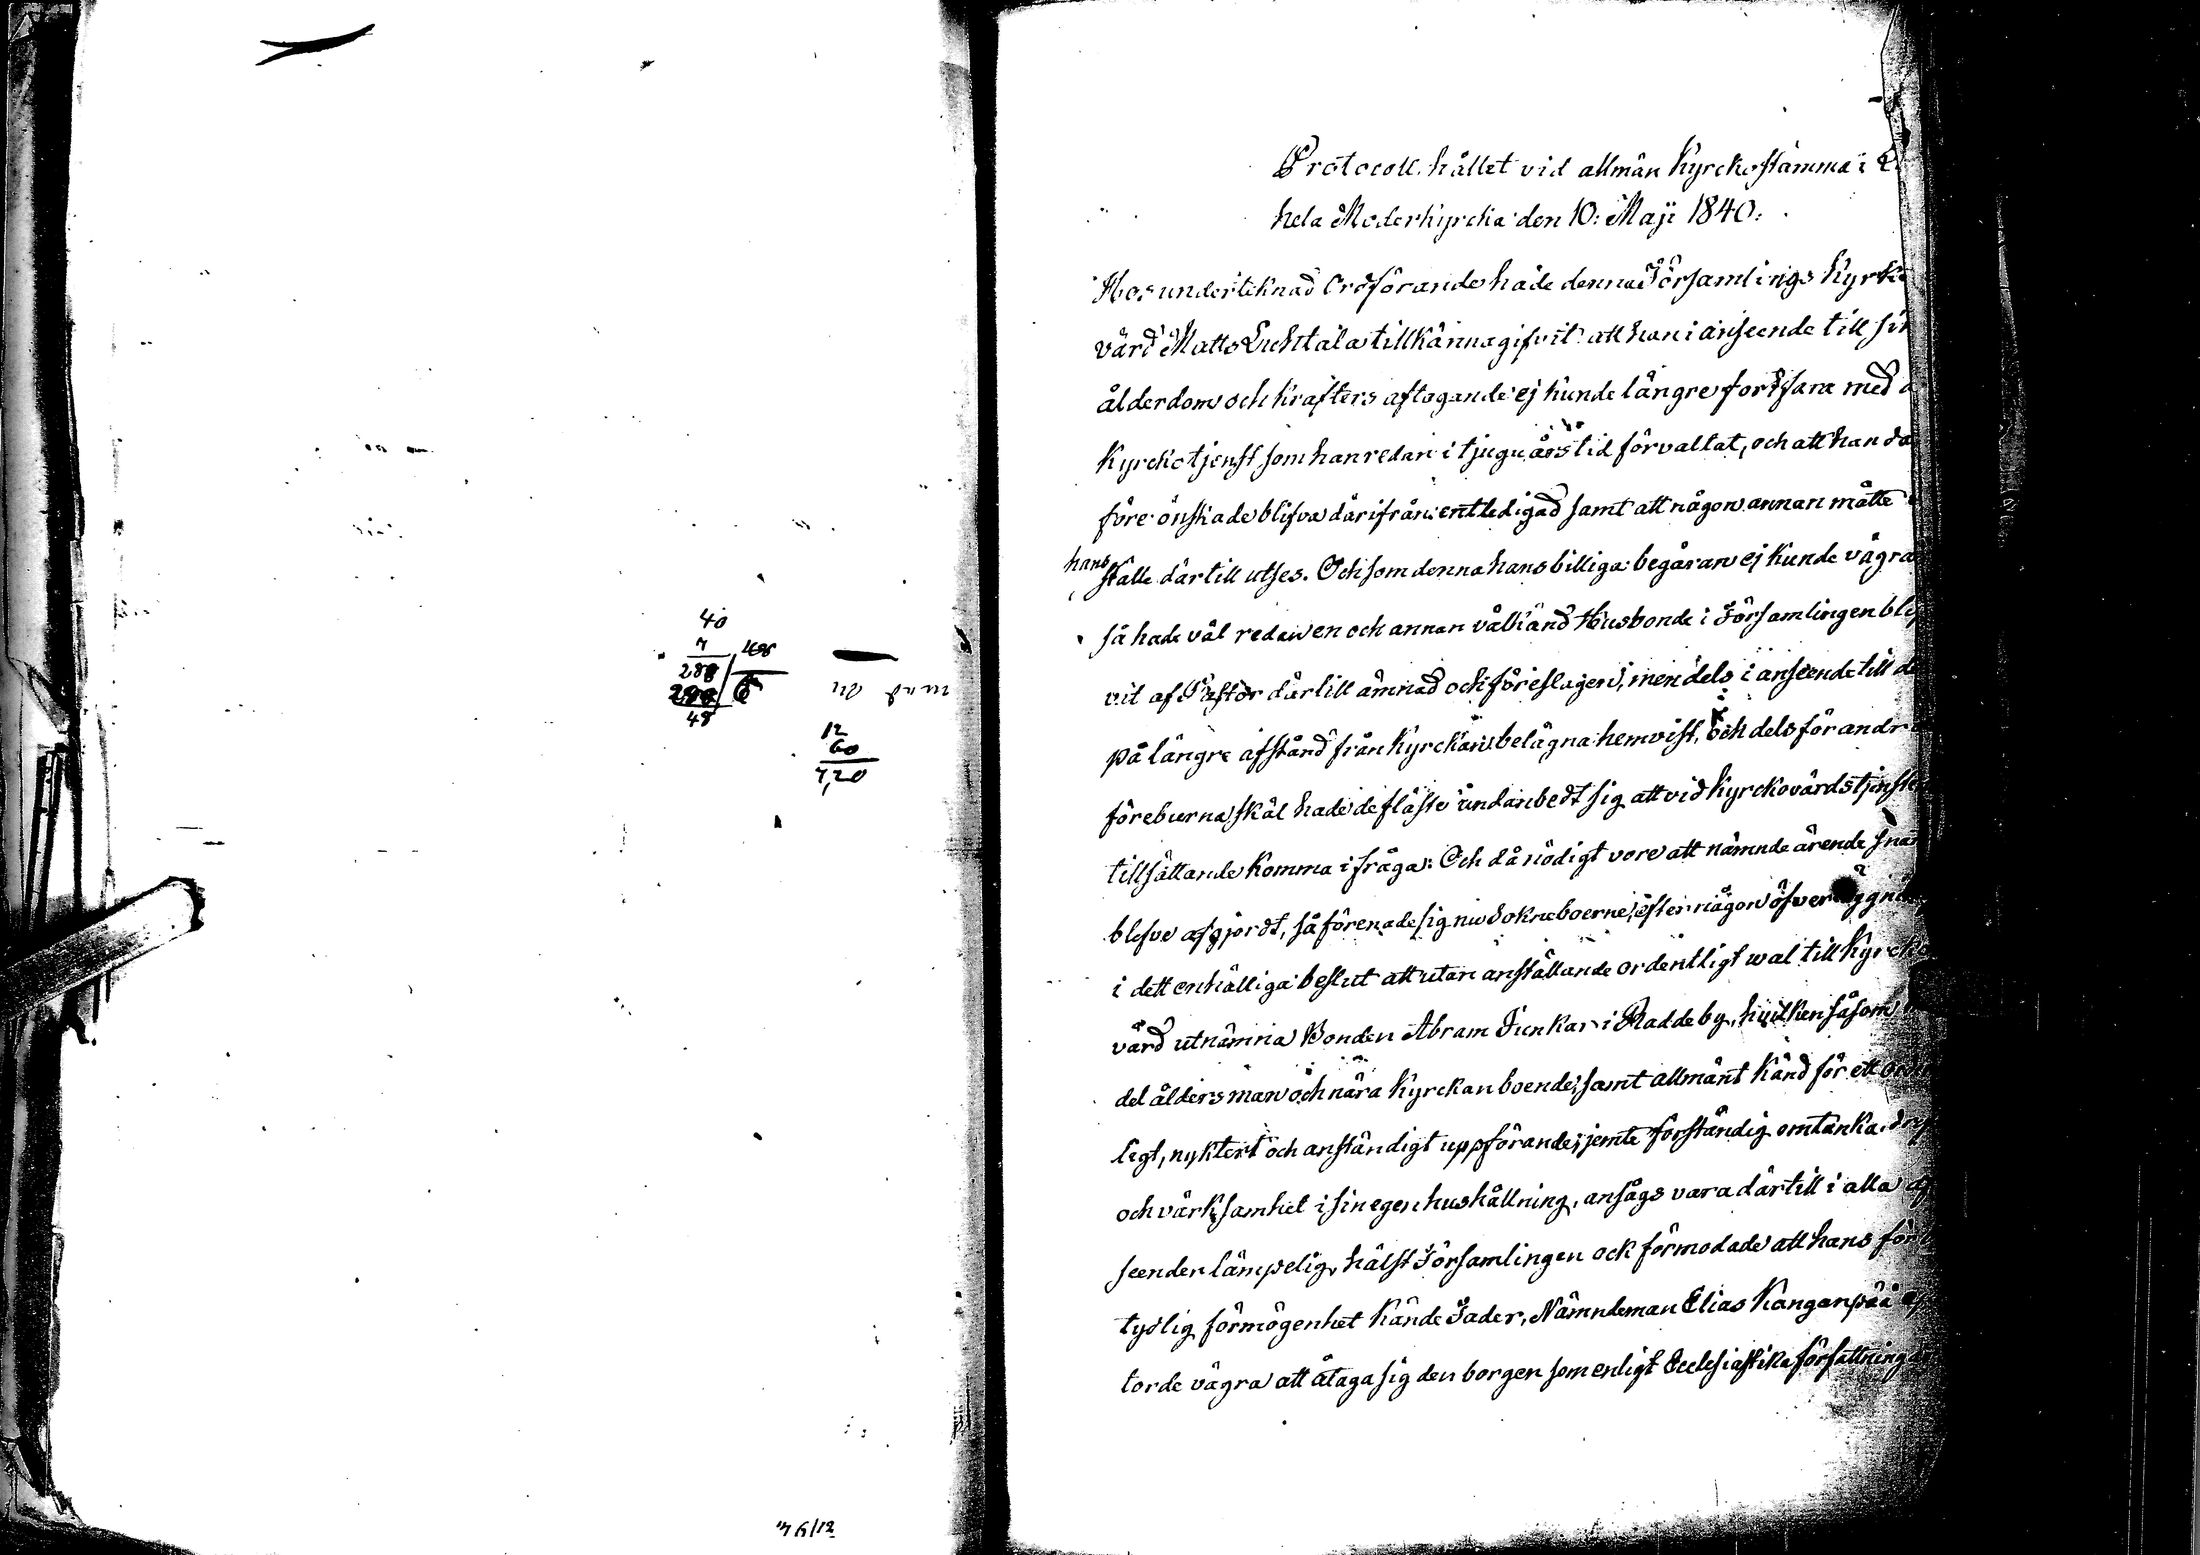 40
7
288
288
48
12
60
7,20
Protocoll, hållet vid allmän Kyrckostämma i
hela Moderkyrcka den 10: Maji 1840:
Hos undertecknad Ordförande hade denna Församlings Kyrko
värd Matts Luhtala tillkännagifvit att han i anseende till sin
ålderdom och krafters aftagande ej kunde längre fortfara med
Kyrckotjenst som han redan i tjugu års tid förvaltat, och att han
före önskade blifva därifrån entledigad samt att någon annan måtte
hans
ställe därtill utses. Och som denna hans billiga begäran ej kunde vägra
så hade väl redan en och annan välkänd Husbonde i Församlingen blif
vit af Pastor därtill ämnad och föreslagen, men dels i anseende till
på längre afstånd från Kyrckan belägna hemvist, och dels för andra
föreburna skäl hade de fläste undanbedt sig att vid Kyrckovärdstjensten
tillsättande komma i fråga: Och då nödigt vore att nämnde ärende snart
blefve afgjordt, så förenade sig nu Sokneboerne, efter någon öfverläggning
i dett enhälliga beslut att utan anställande ordentligt wal till Kyrcko
värd utnämna Bonden Abram Funkar i Radde by, hvilken såsom
del åldersman och nära Kyrckan boende, samt allmänt känd för ett
ligt, nyktert och anständigt uppförande, jemte förståndig omtanka,
och värksamhet i sin egen hushållning, ansågs vara därtill i alla af
seenden lämpelig, hälst Församlingen ock förmodade att hans för
tydlig förmögenhet kände Fader, Nämndeman Elias Kanganpää ej
torde vägra att åtaga sig den borgen som enligt Ecclesiastika författning